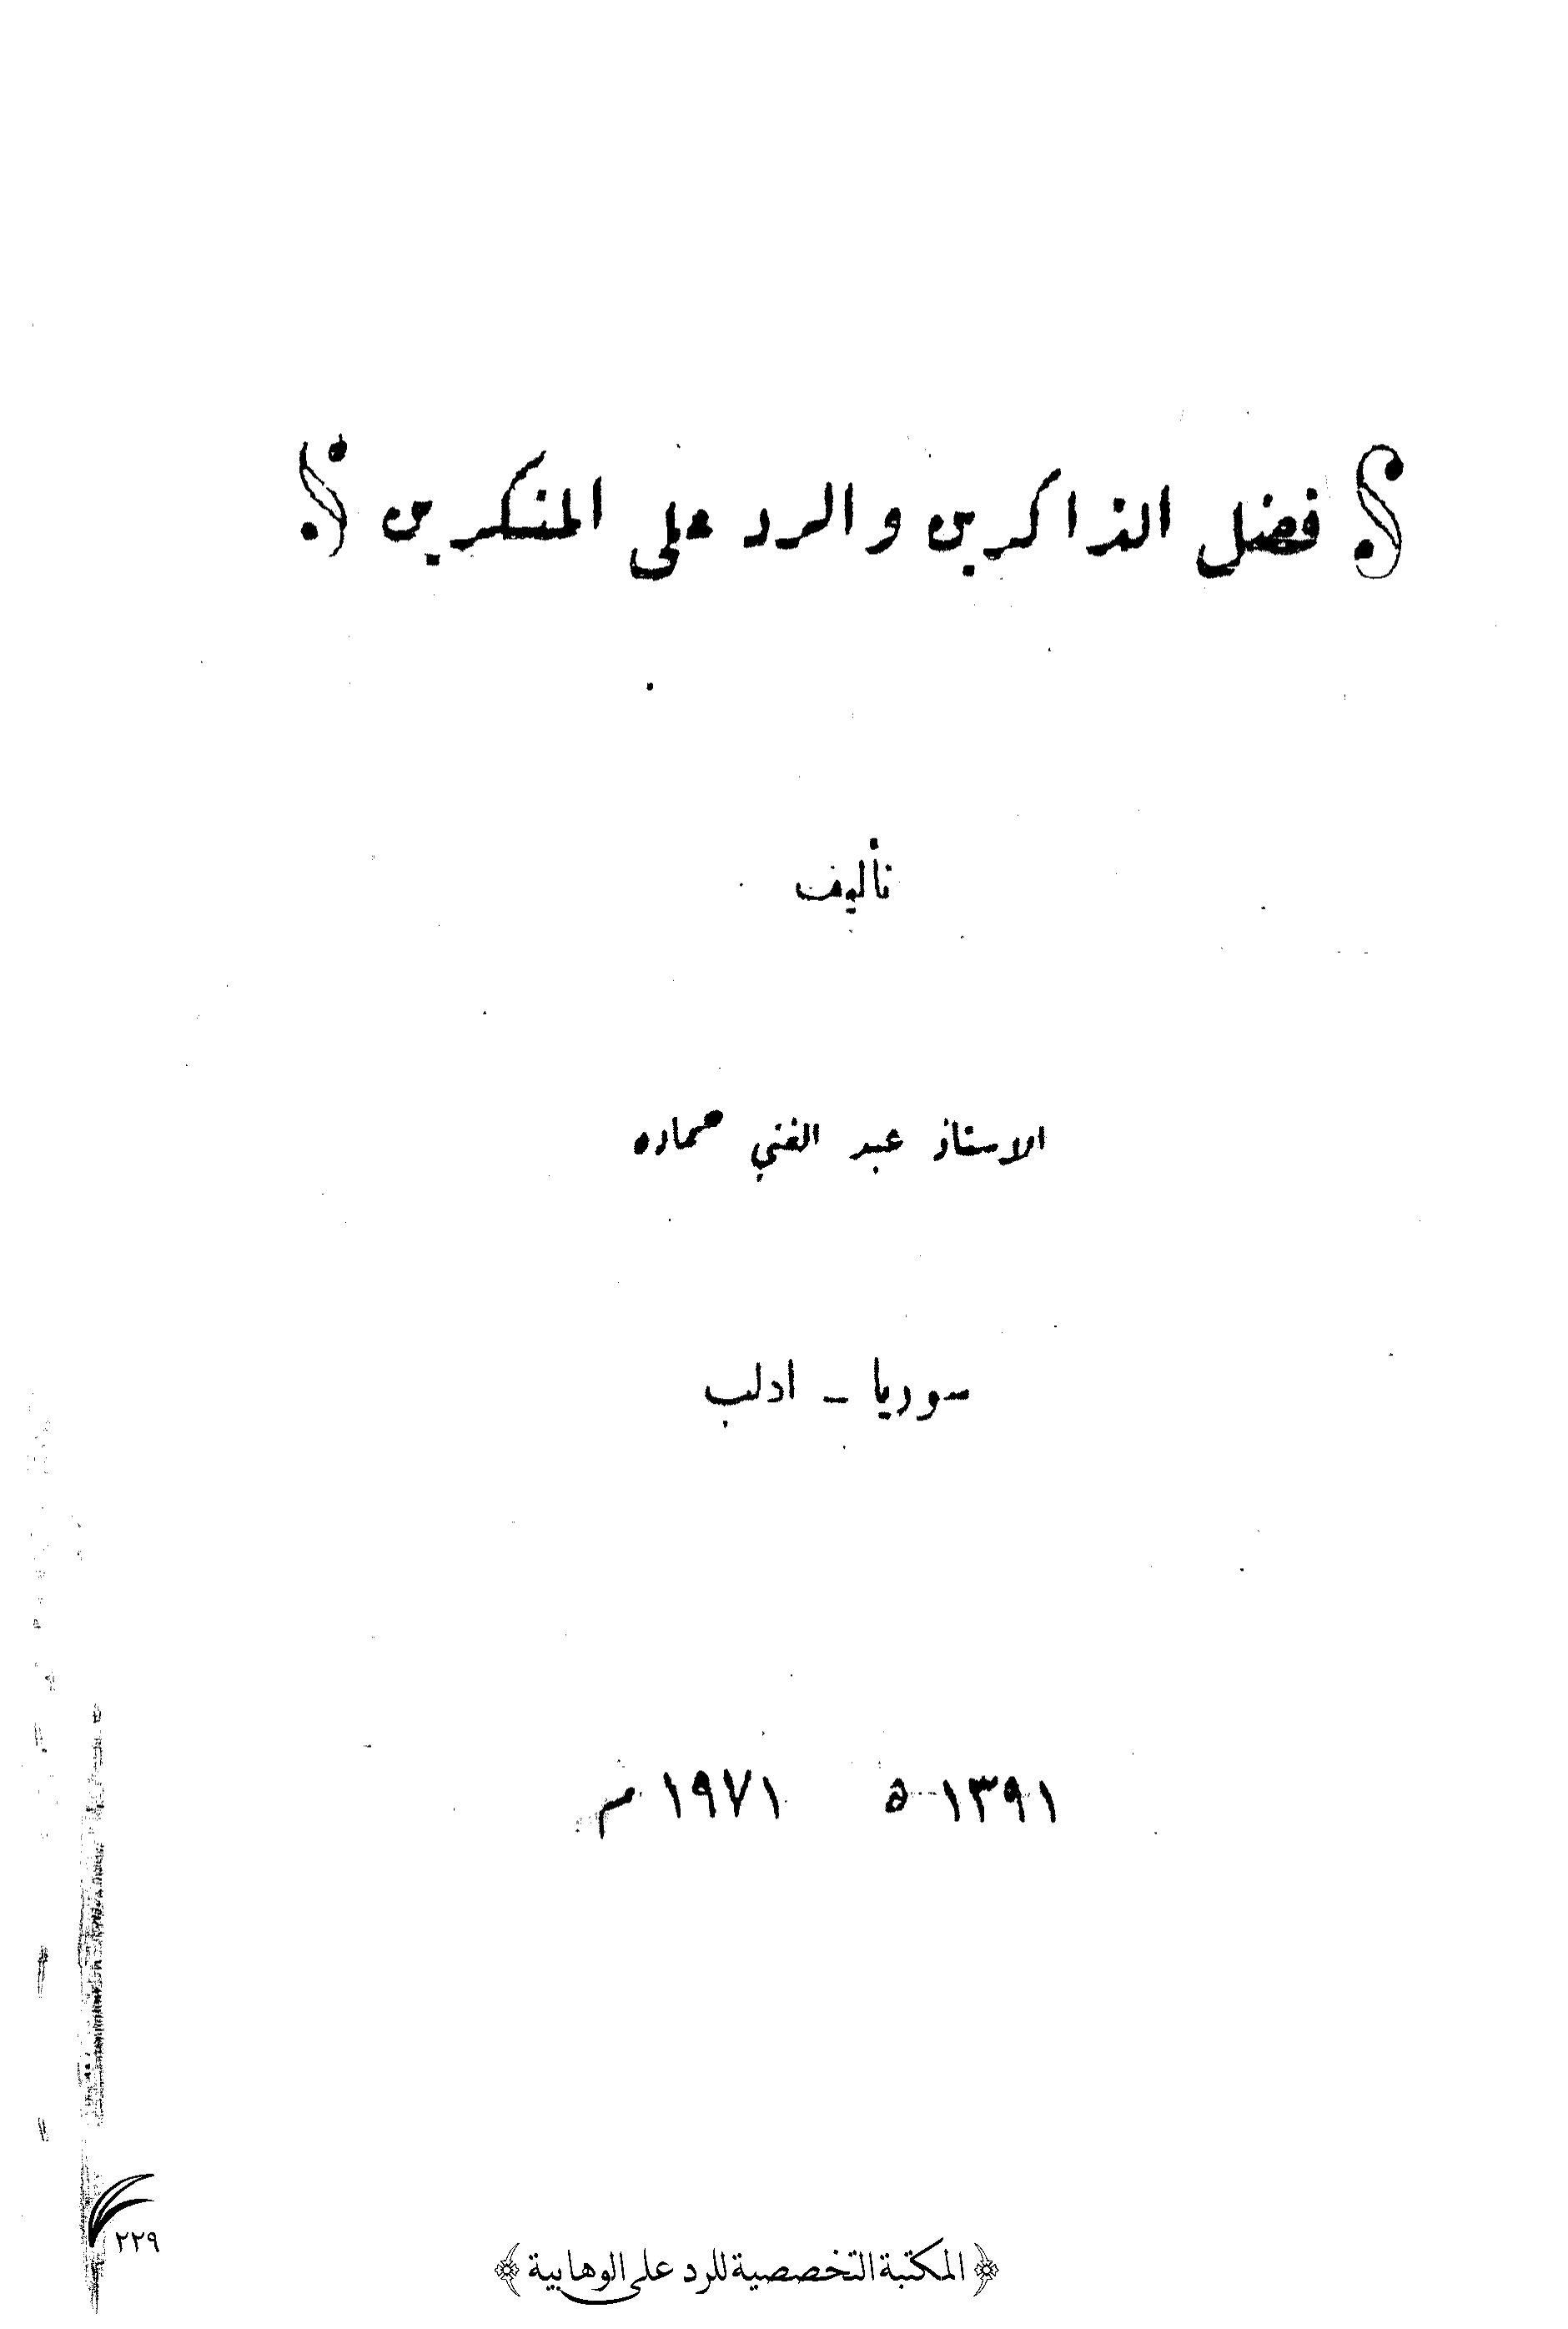 فضل الذاكرين والرد على المنكرين
تأليف
الاستاذ عبد الغني حماده
سوريا - ادلب
١٣٩١ ه ١٩٧١ م
٢٢٩
﴿ المكتبة التخصصية للرد على الوهابية ﴾